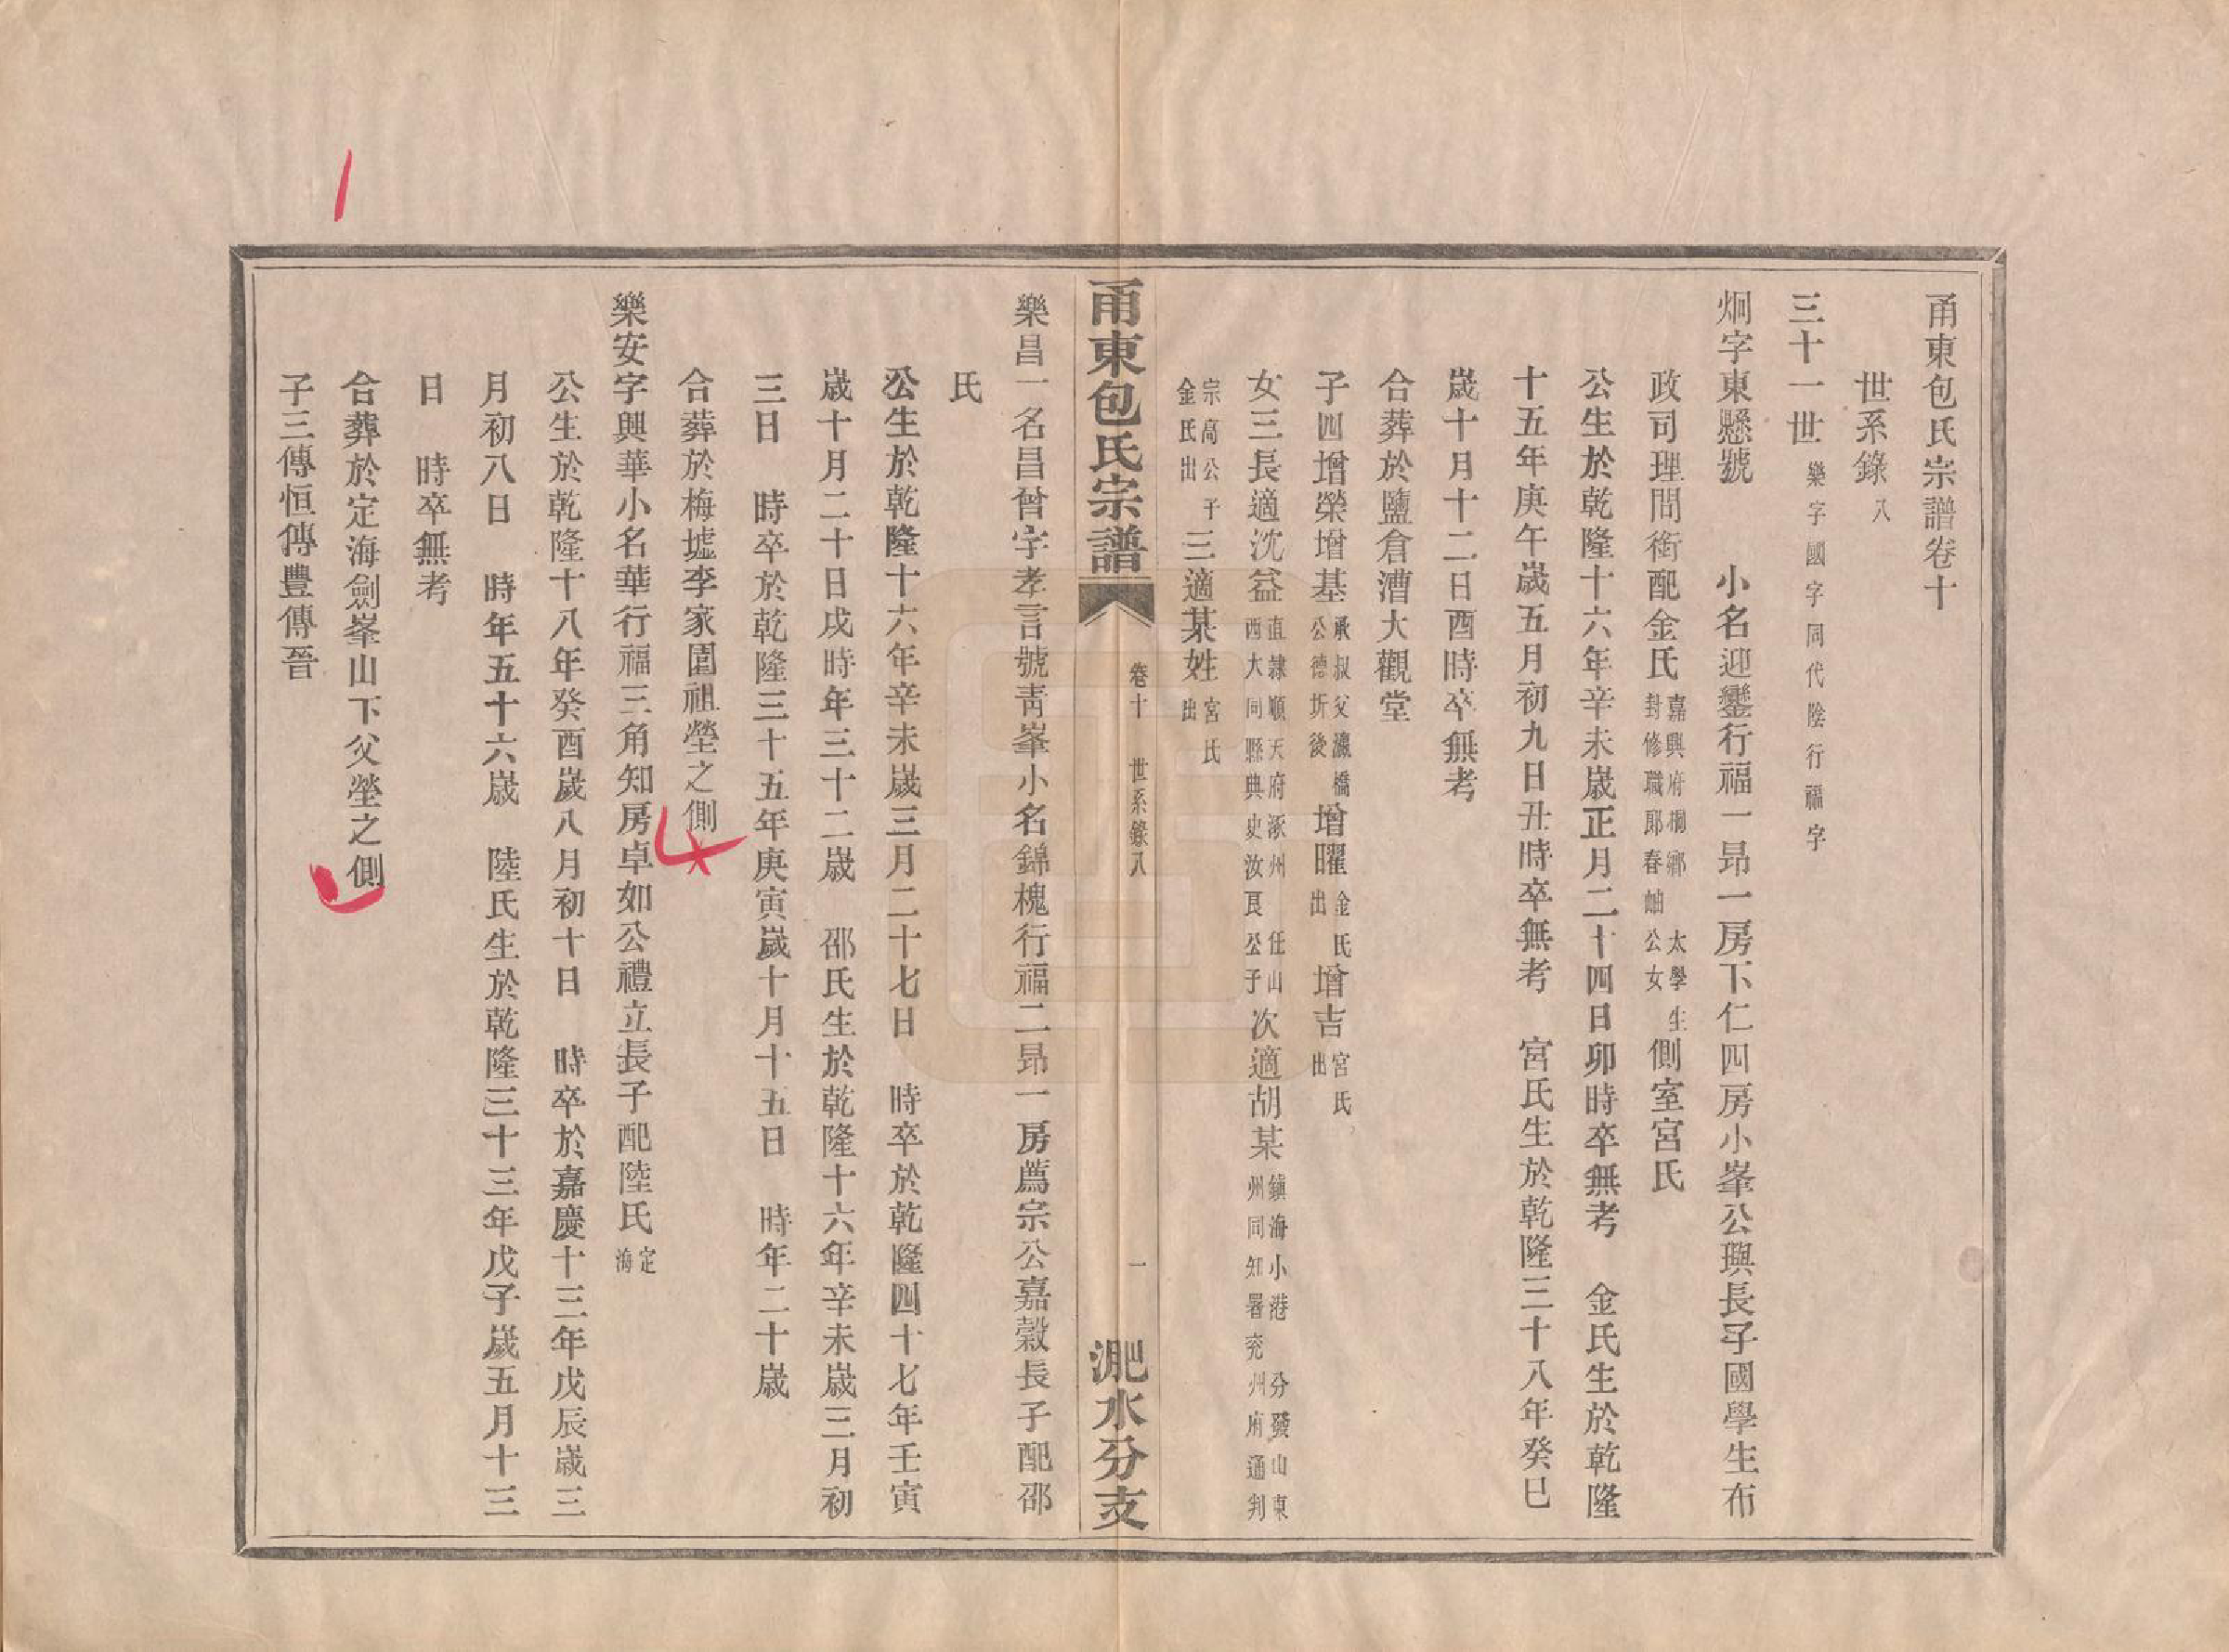 甬東包氏宗譜卷十
世系錄八
三十一世樂字國字同代陰行福字
炯字東懸號　小名迎鑾行福一昻一房下仁四房小峯公璵長子國學生布
政司理問銜配金氏嘉興府桐鄉太學生封修職郎春岫公女側室宮氏
公生於乾隆十六年辛未歲正月二十四日卯時卒無考　金氏生於乾隆
十五年庚午歲五月初九日丑時卒無考　宮氏生於乾隆三十八年癸巳
歲十月十二日酉時卒無考
合葬於鹽倉漕大觀堂
子四增榮增基承叔父瀛橋公德圻後增曜金氏出增吉宮氏出
女三長適沈益直隸順天府涿州任山西大同縣典史汝艮公子次適胡某鎮海小港分發山東州同知署兗州府通判
宗高公子金氏出三適某姓宮氏出
甬東包氏宗譜　卷十　世系錄八　一　淝水分支
樂昌一名昌曾字孝言號靑峯小名錦槐行福二昻一房薦宗公嘉穀長子配邵
氏
公生於乾隆十六年辛未歲三月二十七日　時卒於乾隆四十七年壬寅
歲十月二十日戌時年三十二歲　邵氏生於乾隆十六年辛未歲三月初
三日　時卒於乾隆三十五年庚寅歲十月十五日　時年二十歲
合葬於梅墟李家園祖塋之側
樂安字興華小名華行福三角知房卓如公禮立長子配陸氏定海
公生於乾隆十八年癸酉歲八月初十日　時卒於嘉慶十三年戊辰歲三
月初八日　時年五十六歲　陸氏生於乾隆三十三年戊子歲五月十三
日　時卒無考
合葬於定海劍峯山下父塋之側
子三傳恒傳豐傳晉